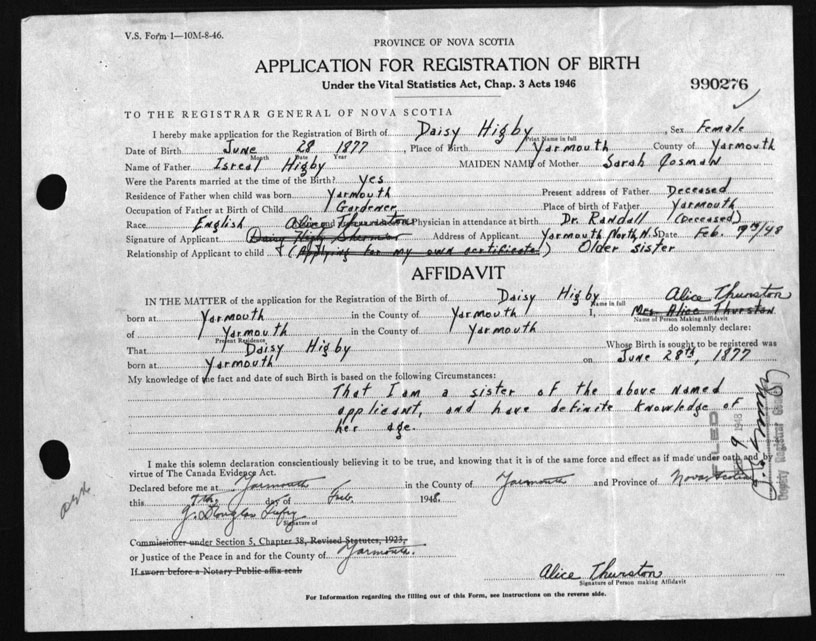 V.S. Form 1—10M-8-46.
PROVINCE OF NOVA SCOTIA
APPLICATION FOR REGISTRATION OF BIRTH
Under the Vital Statistics Act, Chap. 3 Acts 1946
990276
TO THE REGISTRAR GENERAL OF NOVA SCOTIA
I hereby make application for the Registration of Birth of Daisy Higby, Sex Female
Print Name in full
Date of Birth June 28 1877, Place of Birth Yarmouth County of Yarmouth
Month Date Year
Name of Father Isreal Higby MAIDEN NAME of Mother Sarah Cosman
Were the Parents married at the time of the Birth? Yes
Residence of Father when child was born Yarmouth Present address of Father Deceased
Occupation of Father at Birth of Child Gardener Place of birth of Father Yarmouth
Race English Alice Thurston Physician in attendance at birth Dr. Randall (Deceased)
Signature of Applicant Daisy Higby Address of Applicant Yarmouth North, N.S. Date Feb. 7th/48
Relationship of Applicant to child (Applying for my own certificate) Older sister
AFFIDAVIT
IN THE MATTER of the application for the Registration of the Birth of Daisy Higby Alice Thurston
Name in full
born at Yarmouth in the County of Yarmouth I, Mrs. Alice Thurston
Name of Person Making Affidavit
of Yarmouth in the County of Yarmouth do solemnly declare:
Present Residence
That Daisy Higby Whose Birth is sought to be registered was
born at Yarmouth on June 28th, 1877
My knowledge of the fact and date of such Birth is based on the following Circumstances:
That I am a sister of the above named
applicant, and have definite knowledge of
her age.
I make this solemn declaration conscientiously believing it to be true, and knowing that it is of the same force and effect as if made under oath and by
virtue of The Canada Evidence Act.
Declared before me at Yarmouth in the County of Yarmouth and Province of Nova Scotia
this 7th day of Feb. 1948.
Signature of
Commissioner under Section 5, Chapter 38, Revised Statutes, 1923,
or Justice of the Peace in and for the County of Yarmouth.
If sworn before a Notary Public affix seal
Alice Thurston
Signature of Person making Affidavit
For Information regarding the filling out of this Form, see instructions on the reverse side.
FILED
9 1948
Deputy Registrar General